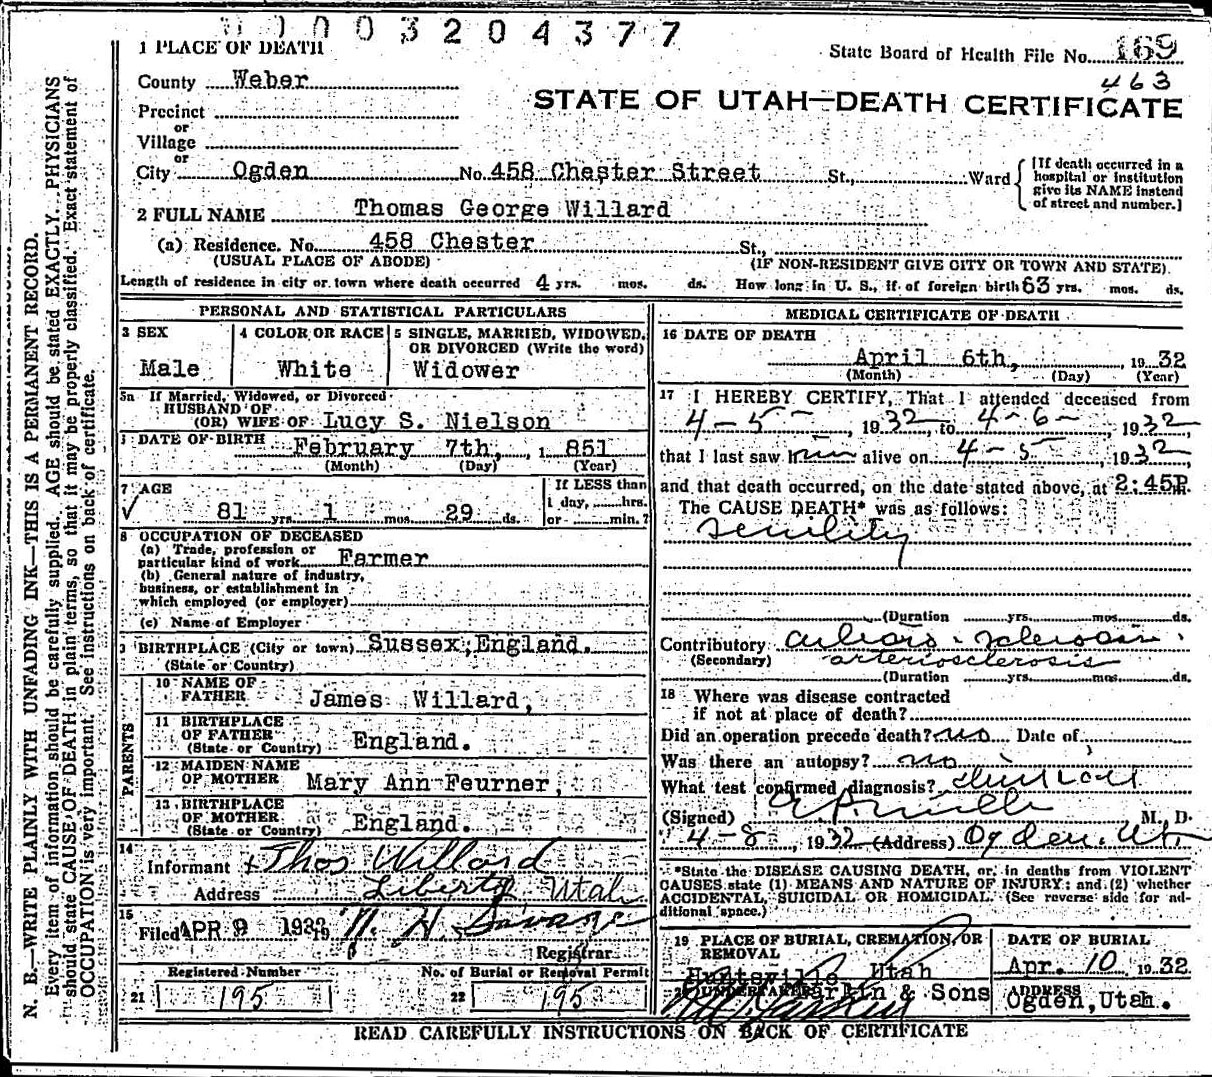 0003204377
1 PLACE OF DEATH
State Board of Health File No. 169
463
County Weber
STATE OF UTAH—DEATH CERTIFICATE
Precinct
or
Village
or
City Ogden No. 458 Chester Street St., Ward
[If death occurred in a hospital or institution give its NAME instead of street and number.]
2 FULL NAME Thomas George Willard
(a) Residence. No. 458 Chester St.,
(USUAL PLACE OF ABODE) (IF NON-RESIDENT GIVE CITY OR TOWN AND STATE)
Length of residence in city or town where death occurred 4 yrs. mos. ds. How long in U. S., if of foreign birth 63 yrs. mos. ds.
PERSONAL AND STATISTICAL PARTICULARS
3 SEX
Male
4 COLOR OR RACE
White
5 SINGLE, MARRIED, WIDOWED, OR DIVORCED (Write the word)
Widower
5a If Married, Widowed, or Divorced
HUSBAND OF
(OR) WIFE OF Lucy S. Nielson
DATE OF BIRTH February 7th, 1851
(Month) (Day) (Year)
7 AGE
81 yrs. 1 mos. 29 ds.
If LESS than
1 day, hrs.
or min.?
8 OCCUPATION OF DECEASED
(a) Trade, profession or
particular kind of work Farmer
(b) General nature of industry,
business, or establishment in
which employed (or employer)
(c) Name of Employer
BIRTHPLACE (City or town) Sussex, England.
(State or Country)
PARENTS
10 NAME OF
FATHER James Willard,
11 BIRTHPLACE
OF FATHER
(State or Country) England.
12 MAIDEN NAME
OF MOTHER Mary Ann Feurner,
13 BIRTHPLACE
OF MOTHER
(State or Country) England.
14
Informant Thos Willard
Address Liberty Utah
15
Filed APR 9 1932 Savage
Registrar
Registered Number
21 195
No. of Burial or Removal Permit
22 195
MEDICAL CERTIFICATE OF DEATH
16 DATE OF DEATH
April 6th, 1932
(Month) (Day) (Year)
17 I HEREBY CERTIFY, That I attended deceased from
4-5-, 1932, to 4-6-, 1932
that I last saw him alive on 4-5, 1932
and that death occurred, on the date stated above, at 2:45P m.
The CAUSE DEATH* was as follows:
senility
(Duration yrs. mos. ds.
Contributory arterio-sclerosis.
(Secondary) arteriosclerosis
(Duration yrs. mos. ds.
18 Where was disease contracted
if not at place of death?
Did an operation precede death? no Date of
Was there an autopsy? no
What test confirmed diagnosis? clinical
(Signed) M. D.
4-8, 1932 (Address) Ogden. Ut
*State the DISEASE CAUSING DEATH, or, in deaths from VIOLENT
CAUSES state (1) MEANS AND NATURE OF INJURY; and (2) whether
ACCIDENTAL, SUICIDAL OR HOMICIDAL. (See reverse side for ad-
ditional space.)
19 PLACE OF BURIAL, CREMATION, OR
REMOVAL
Huntsville, Utah
DATE OF BURIAL
Apr. 10 1932
UNDERTAKER Larkin & Sons
ADDRESS
Ogden, Utah.
READ CAREFULLY INSTRUCTIONS ON BACK OF CERTIFICATE
N. B.—WRITE PLAINLY WITH UNFADING INK—THIS IS A PERMANENT RECORD.
Every item of information should be carefully supplied. AGE should be stated EXACTLY. PHYSICIANS
should state CAUSE OF DEATH in plain terms, so that it may be properly classified. Exact statement of
OCCUPATION is very important. See instructions on back of certificate.